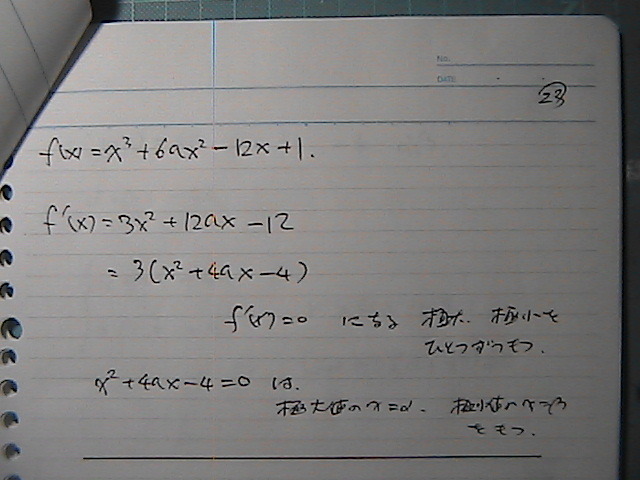 No.
DATE
23
f(x) = x³ + 6ax² - 12x + 1.
f'(x) = 3x² + 12ax - 12
= 3(x² + 4ax - 4)
f'(x) = 0 になる 極大、極小を
ひとつずつもつ.
x² + 4ax - 4 = 0 は.
極大値のx=α. 極小値のx=β
をもつ.